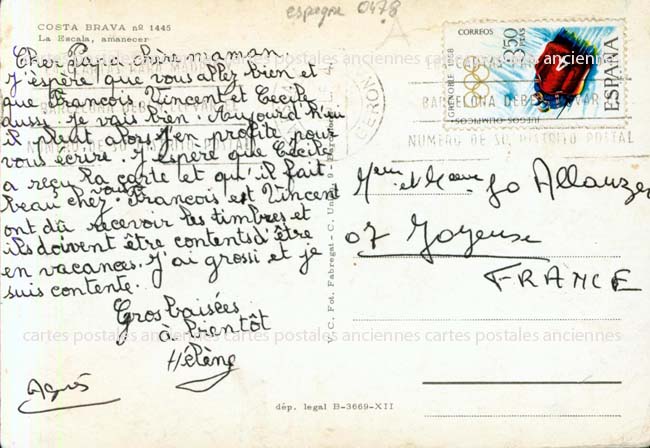 espagne 0478
COSTA BRAVA nº 1445
La Escala, amanecer
Cher papa, chère maman
J'espère que vous allez bien et
que François, Vincent et Cécile
aussi. Je vais bien. Aujourd'hui
il pleut alors j'en profite pour
vous écrire. J'espère que Cécile
a reçu la carte et qu'il fait
beau chez vous. François et Vincent
ont dû recevoir les timbres et
ils doivent être contents d'être
en vacances. J'ai grossi et je
suis contente.
Gros baisées
à bientôt
Hélène
Agnès
V. C. Fot. Fabregat - C. Unión, 9 -
dép. legal B-3669-XII
CORREOS
3'50
PTAS
ESPAÑA
GRENOBLE 1968
JUEGOS OLIMPICOS
GERON
CARTAS PARA
BARCELONA DEBEN LLEVAR
NUMERO DE SU DISTRITO POSTAL
et Jo Allauzen
07 Joyeuse
FRANCE
cartes postales anciennes cartes postales anciennes cartes postales anciennes
cartes postales anciennes cartes postales anciennes cartes postales anciennes